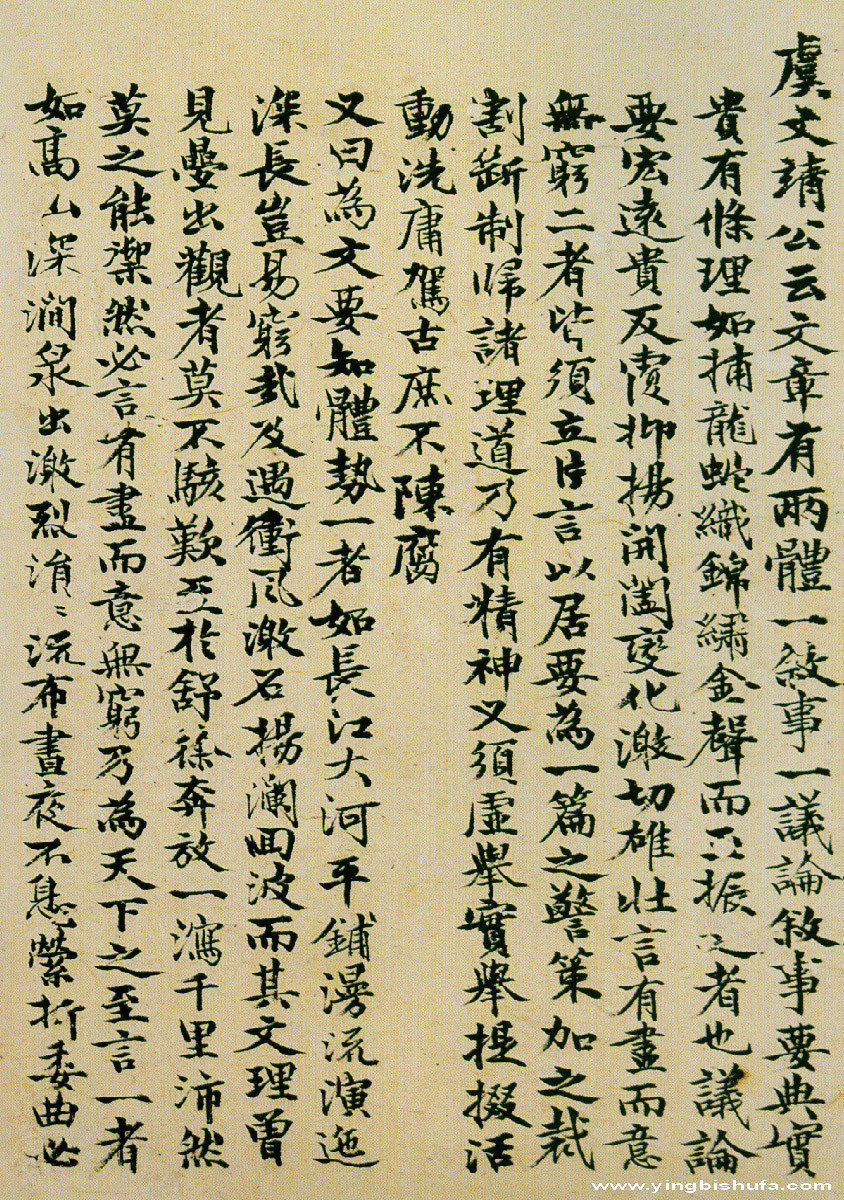 虞文靖公云文章有兩體一敘事一議論敘事要典實
貴有條理如捕龍蛇織錦繡金聲而玉振之者也議論
要宏遠貴反覆抑揚開闔變化激切雄壯言有盡而意
無窮二者皆須立片言以居要為一篇之警策加之裁
割斷制歸諸理道乃有精神又須虛舉實舉提掇活
動洗庸駕古庶不陳腐
又曰為文要知體勢一者如長江大河平鋪漫流演迤
深長豈易窮哉及遇衝風激石揚瀾回波而其文理曾
見疊出觀者莫不駭歎至於舒徐奔放一瀉千里沛然
莫之能禦然必言有盡而意無窮乃為天下之至言一者
如高山深澗泉出激烈涓〻流布晝夜不息縈折委曲必
www.yingbishufa.com